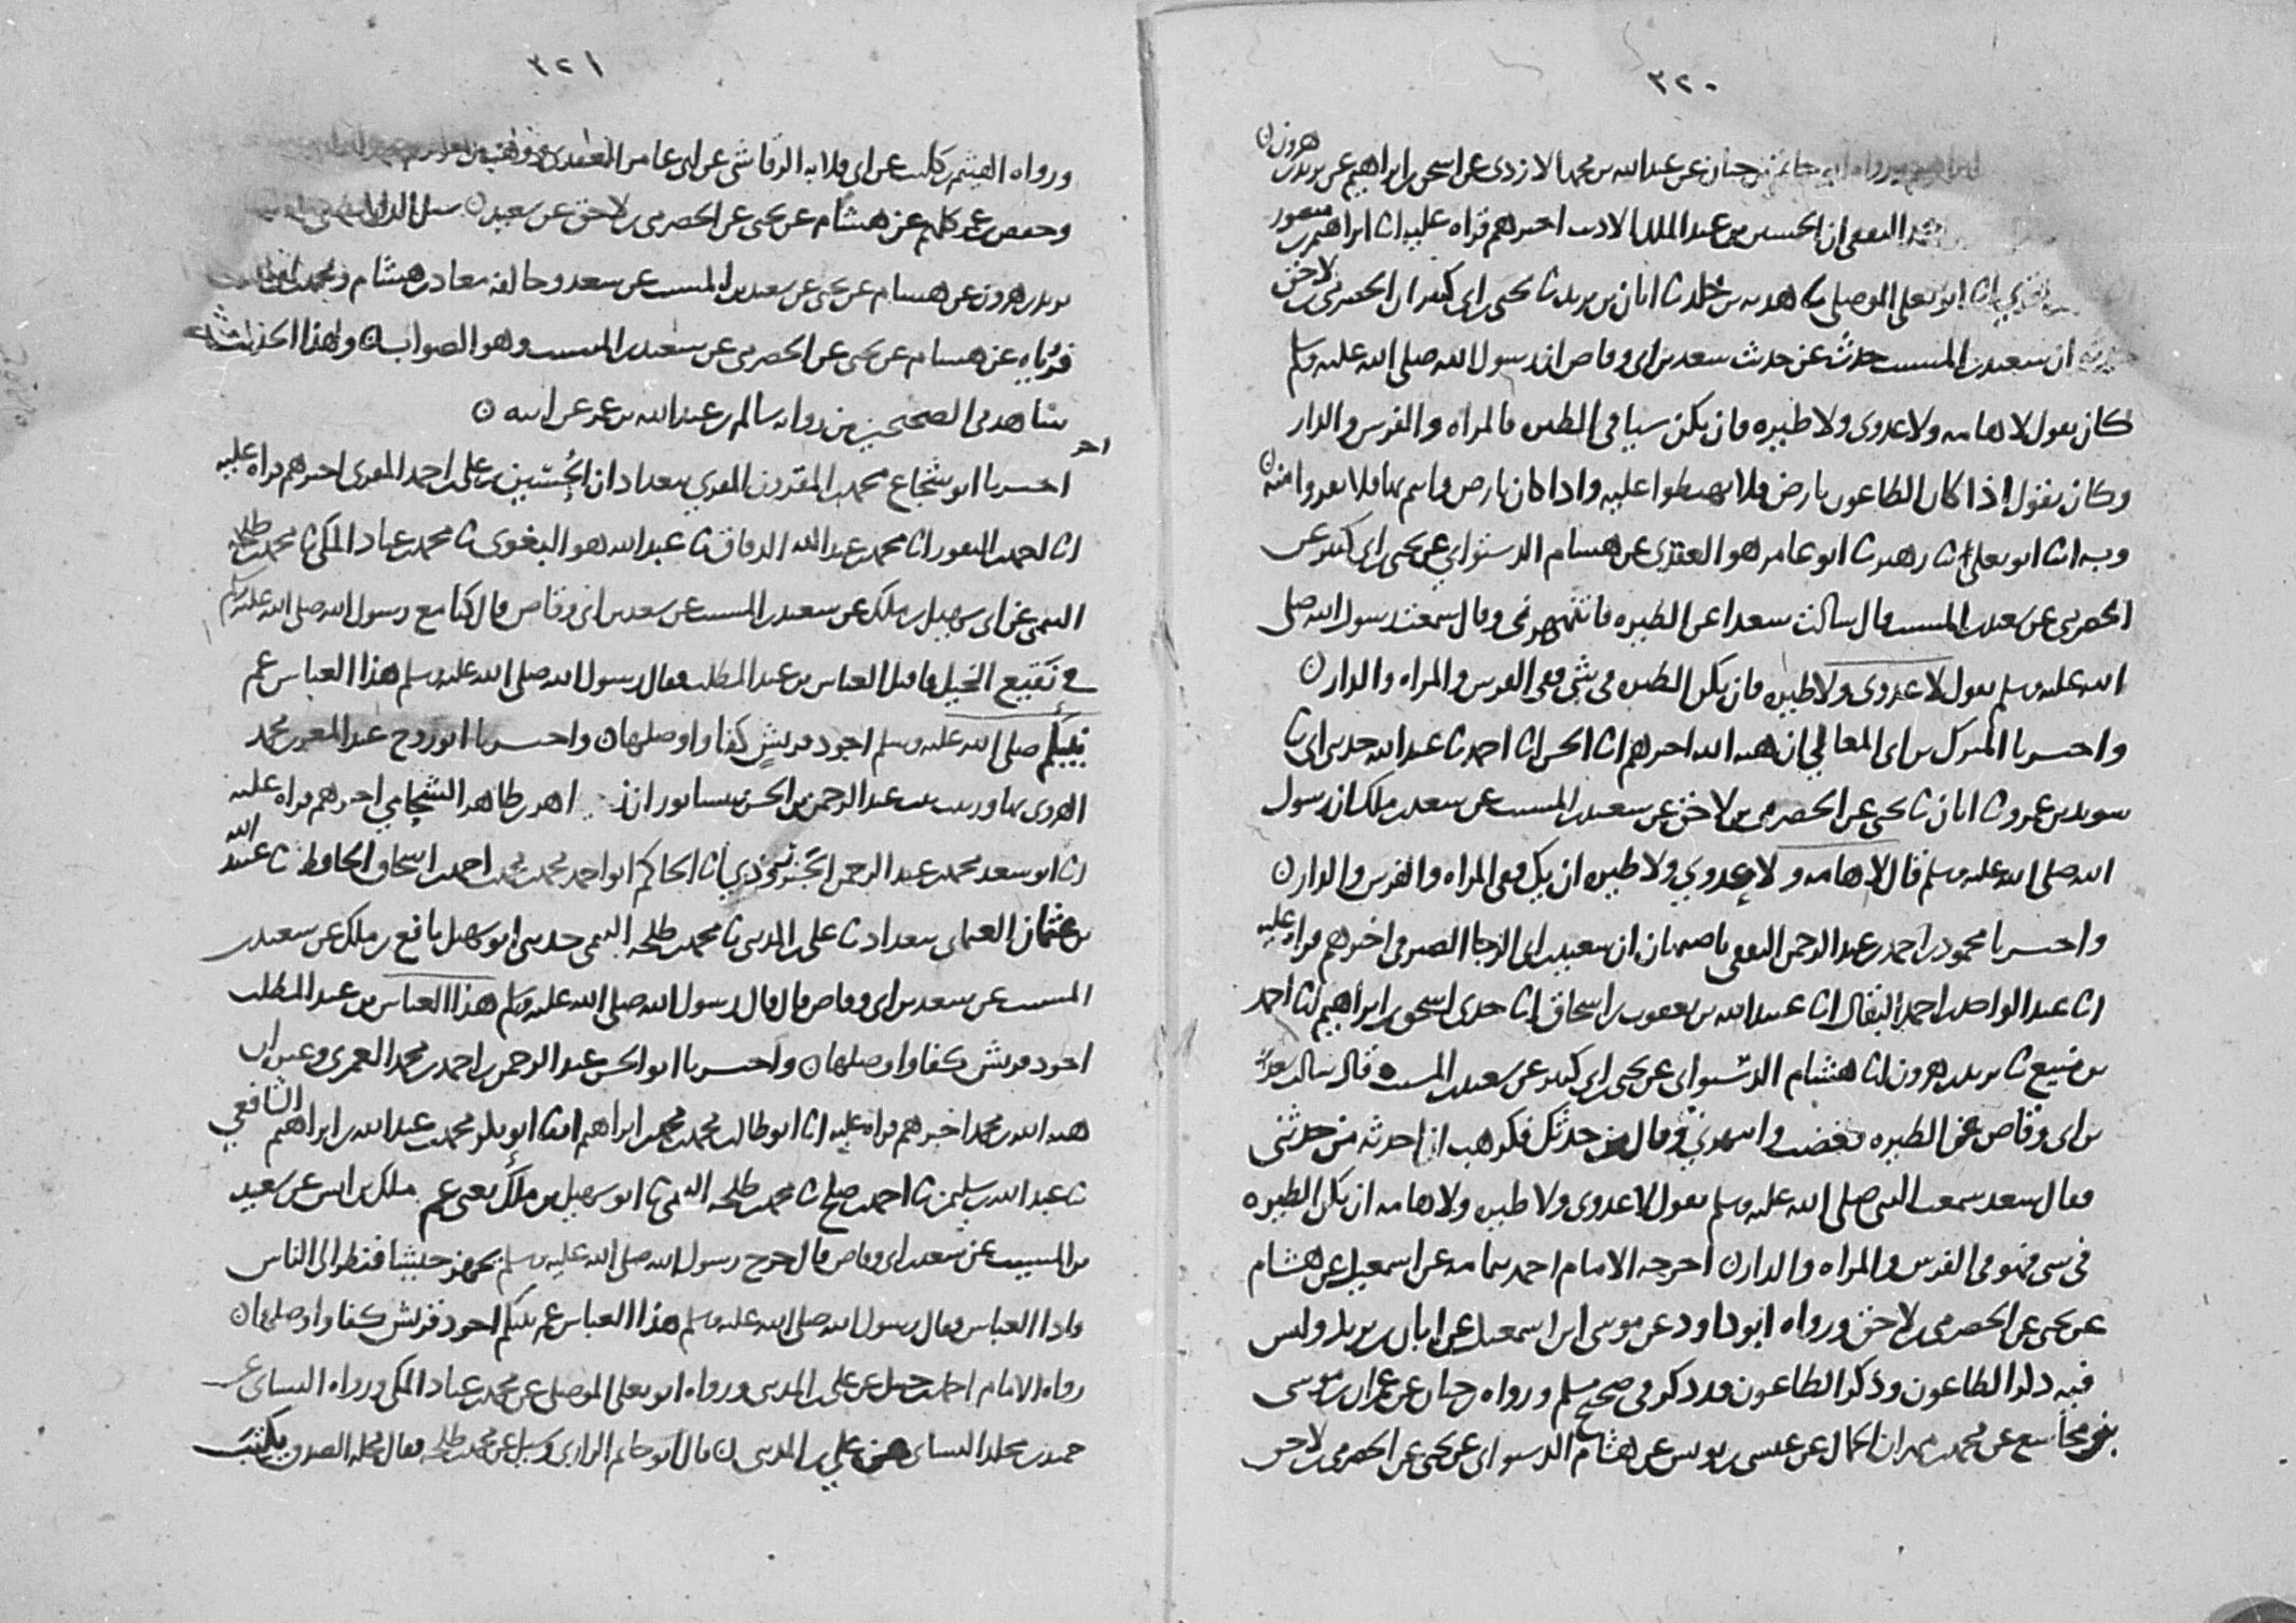 ٣٢٠
ابراهيم ورواه ابو حاتم بن حبان عن عبد الله بن محمد الازدي عن اسحق بن ابراهيم عن يزيد بن هرون
الثقفي ان الحسين بن عبد الملك الاديب اخبرهم قراه عليه انا ابراهيم بن منصور
انا ابو يعلى الموصلي ثنا هدبه بن خلد ثنا ابان بن يزيد ثنا يحيى بن ابي كثير ان الحضرمي بن لاحق
حدثه ان سعيد بن المسيب حدث عن حديث سعد بن ابي وقاص ان رسول الله صلى الله عليه وسلم
كان يقول لا هامه ولا عدوى ولا طيره فان يكن شيا في الطير فالمراه والفرس والدار
وكان يقول اذا كان الطاعون بارض فلا تهبطوا عليه واذا كان بارض وانتم بها فلا تفروا منه
وبه انا ابو يعلى ثنا زهير ثنا ابو عامر هو العقدي عن هشام الدستوائي عن يحيى بن ابي كثير عن
الحضرمي عن سعيد بن المسيب قال سالت سعدا عن الطيره فانتهرني وقال سمعت رسول الله صلى
الله عليه وسلم يقول لا عدوى ولا طيره فان يكن الطير في شي ففي الفرس والمراه والدار
واخبرنا المبرك بن ابي المعالي ان هبه الله اخبرهم انا الحسن انا احمد ثنا عبد الله حدثني ابي ثنا
سويد بن عمرو ثنا ابان ثنا يحيى عن الحضرمي بن لاحق عن سعيد بن المسيب عن سعد بن ملك ان رسول
الله صلى الله عليه وسلم قال لا هامه ولا عدوي ولا طيره ان يك ففي المراه والفرس والدار
واخبرنا محمود بن احمد بن عبد الرحمن الثقفي باصبهان ان سعيد بن ابي الرجا الصيرفي اخبرهم قراه عليه
انا عبد الواحد بن احمد البقال انا عبيد الله بن يعقوب بن اسحاق انا جدي اسحق بن ابراهيم انا احمد
بن منيع ثنا يزيد بن هرون انا هشام الدستوائي عن يحيى بن ابي كثير عن سعيد بن المسيب قال سالت سعد
بن ابي وقاص عن الطيره فغضب وانتهرني وقال من حدثك فكرهت ان احدثه من حدثني
فقال سعد سمعت النبي صلى الله عليه وسلم يقول لا عدوى ولا طيره ولا هامه ان يكن الطيره
في شي فهو في الفرس والمراه والدار اخرجه الامام احمد بتمامه عن اسمعيل عن هشام
عن يحيى عن الحضرمي بن لاحق ورواه ابو داود عن موسى ابن اسمعيل عن ابان بن يزيد وليس
فيه ذكر الطاعون وذكر الطاعون قد ذكر في صحيح مسلم ورواه حبان عن عمران بن موسى
بن مجاشع عن محمد بن مهران الجمال عن عيسى بن يونس عن هشام الدستوائي عن يحيى عن الحضرمي بن لاحق
٣٢١
ورواه الهيثم بن كليب عن ابي قلابه الرقاشي عن ابي عامر العقدي
وحفص بن عمر كلهم عن هشام عن يحيى عن الحضرمي بن لاحق عن سعيد سئل الدارقطني
يزيد بن هرون عن هشام عن يحيى عن سعيد بن المسيب عن سعد وخالفه معاذ بن هشام ومحمد
فروياه عن هشام عن يحيى عن الحضرمي عن سعيد بن المسيب وهو الصواب وهذا الحديث له
شاهد في الصحيحين من روايه سالم بن عبد الله بن عمر عن ابيه
اخر
اخبرنا ابو شجاع محمد بن المقرون المقري ببغداد ان الحسين بن علي بن احمد المقري اخبرهم قراه عليه
انا احمد بن النقور انا محمد بن عبد الله الدقاق ثنا عبد الله هو البغوي ثنا محمد بن عباد المكي ثنا محمد بن طلحه
التيمي عن ابي سهيل بن ملك عن سعيد بن المسيب عن سعد بن ابي وقاص قال كنا مع رسول الله صلى الله عليه وسلم
في نقيع الخيل فاقبل العباس بن عبد المطلب فقال رسول الله صلى الله عليه وسلم هذا العباس عم
نبيكم صلى الله عليه وسلم اجود قريش كفا واوصلها واخبرنا ابو روح عبد المعز بن محمد
الهروي بها وزينب بنت عبد الرحمن بن الحسن بنيسابور ان زاهر بن طاهر الشحامي اخبرهم قراه عليه
انا ابو سعد محمد بن عبد الرحمن الجنزروذي انا الحاكم ابو احمد محمد بن محمد بن احمد بن اسحاق الحافظ ثنا عبد الله
بن عثمان العثماني ببغداد ثنا علي بن المديني ثنا محمد بن طلحه التيمي حدثني ابو سهيل نافع بن ملك عن سعيد بن
المسيب عن سعد بن ابي وقاص قال قال رسول الله صلى الله عليه وسلم هذا العباس بن عبد المطلب
اجود قريش كفا واوصلها واخبرنا ابو الحسن عبد الرحمن بن احمد بن محمد العمري وغيره ان
هبه الله بن محمد اخبرهم قراه عليه انا ابو طالب محمد بن محمد بن ابراهيم انا ابو بكر محمد بن عبد الله بن ابراهيم الشافعي
ثنا عبد الله بن سليمن ثنا احمد بن صلح ثنا محمد بن طلحه التيمي ثنا ابو سهيل بن ملك يعني عم ملك بن انس عن سعيد
بن المسيب عن سعد بن ابي وقاص قال خرج رسول الله صلى الله عليه وسلم يجهز جيشا فنظر الى الناس
واذا العباس فقال رسول الله صلى الله عليه وسلم هذا العباس عم نبيكم اجود قريش كفا واوصلها
رواه الامام احمد بن حنبل عن علي بن المديني ورواه ابو يعلى الموصلي عن محمد بن عباد المكي ورواه النسائي عن
حميد بن مخلد النسائي عن علي بن المديني قال ابو حاتم الرازي وسئل عن محمد بن طلحه فقال محله الصدق يكتب